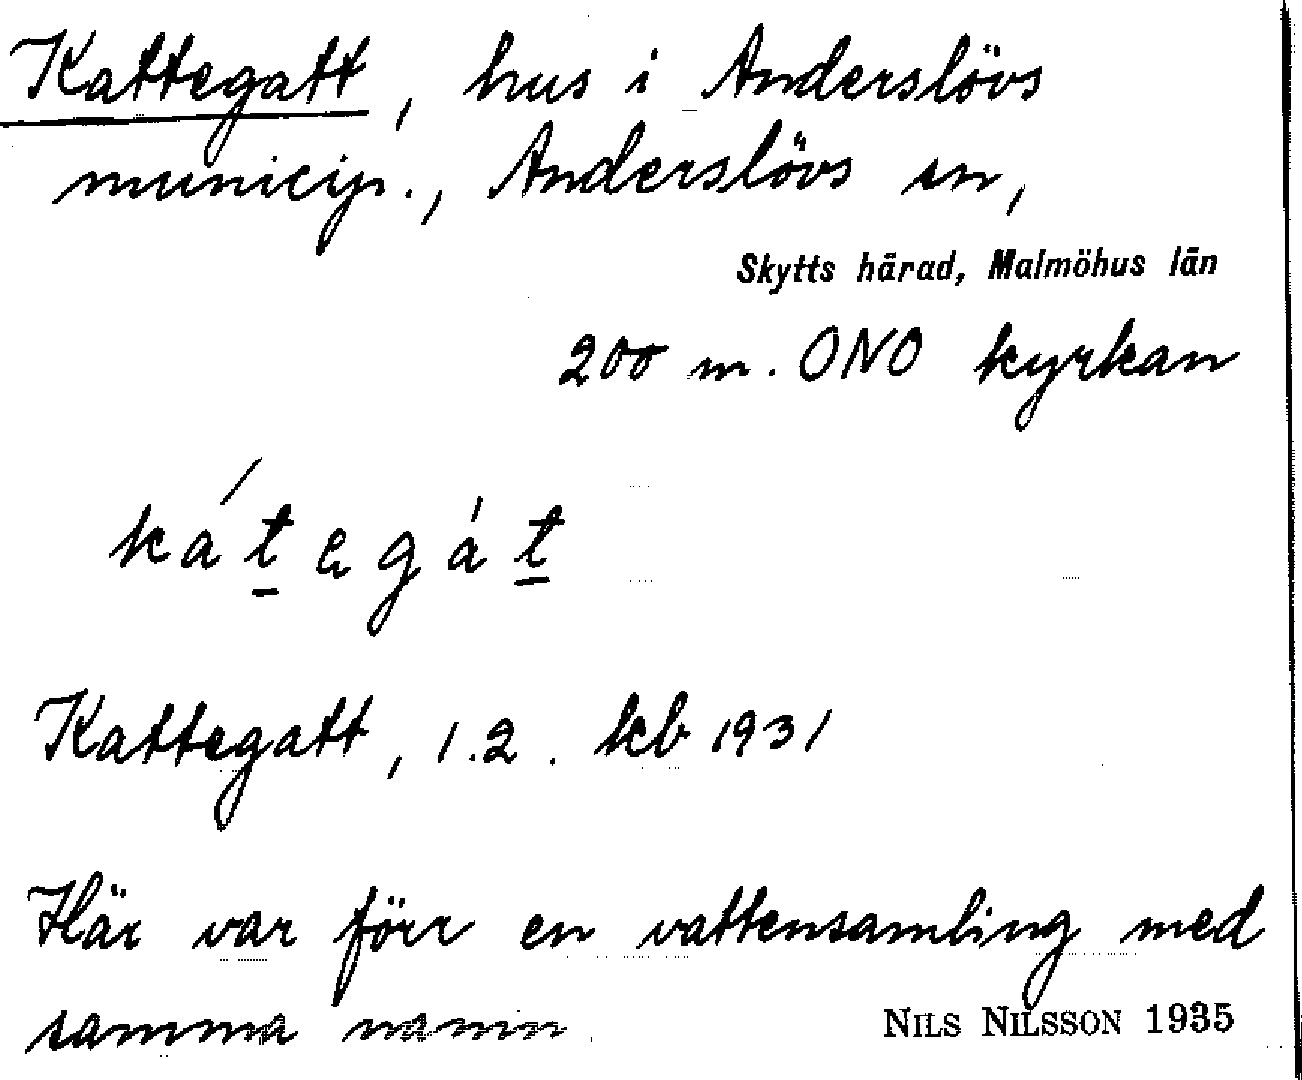 Kattegatt, hus i Anderslövs
municip., Anderslövs sn,
Skytts härad, Malmöhus län
200 m. ONO kyrkan
ká́t̲egát̲
Kattegatt, 1.2. kb 1931
Här var förr en vattensamling med
samma namn.
NILS NILSSON 1935